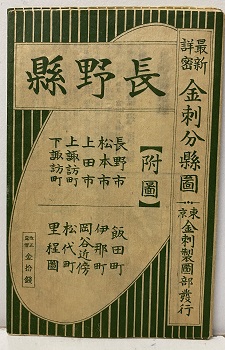 最新
詳密
金刺分縣圖
東京 金刺製圖部發行
長野縣
【附圖】
長野市
松本市
上田市
上諏訪町
下諏訪町
飯田町
伊那町
岡谷近傍
松代町
里程圖
金拾錢